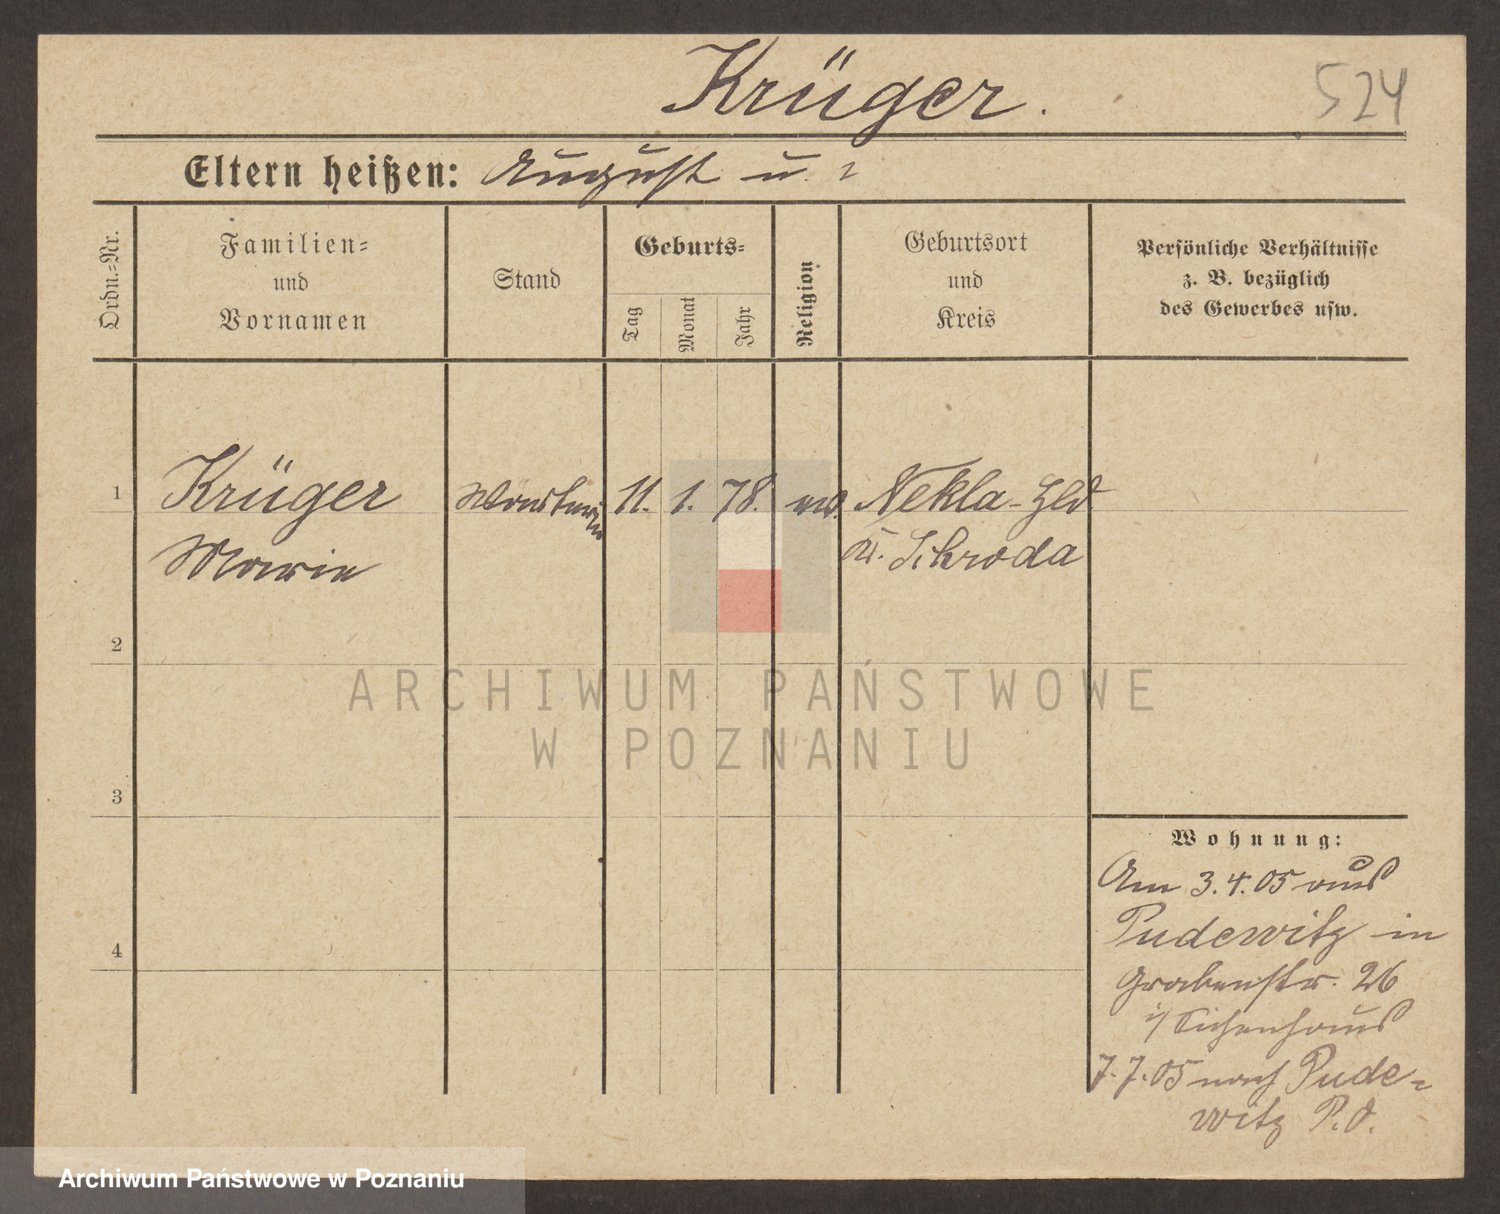 Krüger.
524
Eltern heißen: August u. ?
Ordn.-Nr.
Familien-
und
Vornamen
Stand
Geburts-
Tag
Monat
Jahr
Religion
Geburtsort
und
Kreis
Persönliche Verhältnisse
z. B. bezüglich
des Gewerbes usw.
1
Krüger
Marie
11. 1. 78.
ev.
Nekla-Hld
Kr. Schroda
2
3
4
Wohnung:
Am 3.4.05 aus
Pudewitz in
Grabenstr. 26
i/ Siechenhaus
7.7.05 nach Pude-
witz P.O.
ARCHIWUM PAŃSTWOWE
W POZNANIU
Archiwum Państwowe w Poznaniu